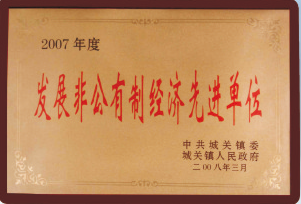 2007 年度
发展非公有制经济先进单位
中共城关镇委
城关镇人民政府
二00八年三月